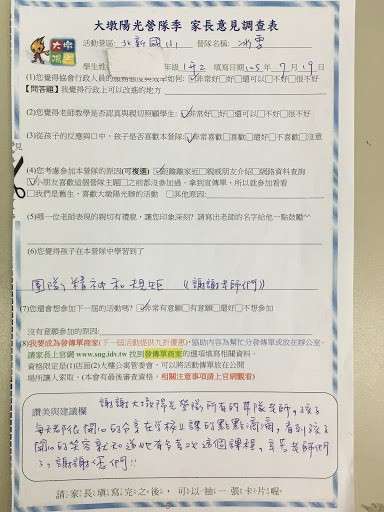 大墩陽光營隊季 家長意見調查表
大墩
陽光
活動營區: 北新國小 營隊名稱: 冰雪
學生姓 年級 1年2 填寫日期105年7月19日
(1)您覺得協會行政人員的服務態度與效率如何: ☑非常好□好□還可以□不好□很不好
【問答題】我覺得行政上可以改進的地方
(2)您覺得老師教學是否認真與親切照顧學生: ☑非常好□好□還可以□不好□很不好
(3)從孩子的反應與口中，孩子是否喜歡本營隊: ☑非常喜歡□喜歡□還好□不喜歡□沒意見
(4)您考慮參加本營隊的原因(可複選) ☑距離離家近□親戚朋友介紹□網路資料查詢
☑小朋友喜歡這個營隊主題□之前都沒參加過，拿到宣傳單，所以就參加看看
□我們是舊生，喜歡大墩陽光辦的活動 □其他原因:
(5)哪一位老師表現的親切有禮貌，讓您印象深刻? 請寫出老師的名字給他一點鼓勵^^
(6)您覺得孩子在本營隊中學習到了
團隊精神和規矩 (謝謝老師們)
(7)您還會想參加下一屆的活動嗎? ☑非常有意願□有意願□還好□不想參加
沒有意願參加的原因:
(8)我要成為發傳單商家(下一屆活動提供九折優惠)，協助內容為幫忙分發傳單或放在辦公室。
請家長上官網 www.sng.idv.tw 找到發傳單商家的選項填寫相關資料。
資格限定是(1)店面(2)大樓公寓管委會，可以將活動傳單放在公開
場所讓人索取，(本會有最後審查資格，相關注意事項請上官網觀看)
讚美與建議欄 謝謝大墩陽光營隊所有的帶隊老師，孩子
每天都很開心的分享在學校上課的點點滴滴，看到孩子
開心的笑容就知道她有多喜歡這個課程，辛苦老師們
了，謝謝您們!!
請家長填寫完之後，可以抽一張卡片喔。